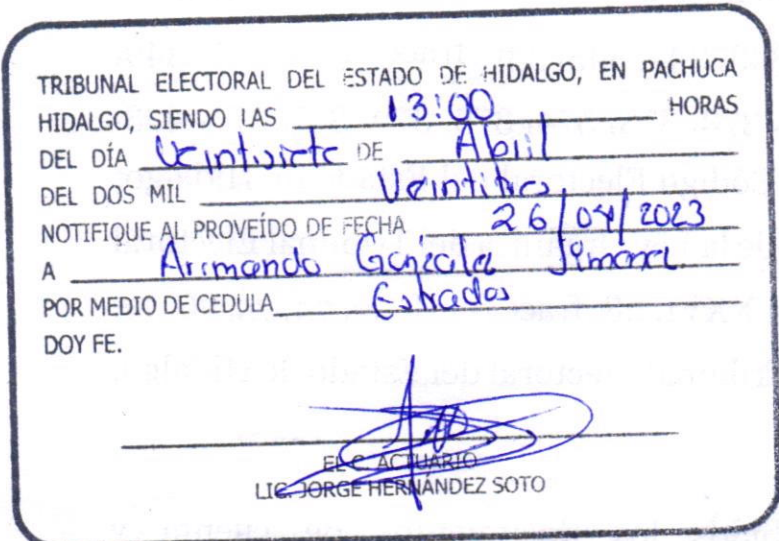 TRIBUNAL ELECTORAL DEL ESTADO DE HIDALGO, EN PACHUCA
HIDALGO, SIENDO LAS 13:00 HORAS
DEL DÍA Veintisiete DE Abril
DEL DOS MIL Veintitres
NOTIFIQUE AL PROVEÍDO DE FECHA 26/04/2023
A Armando Gonzalez Jimenez
POR MEDIO DE CEDULA Estrados
DOY FE.
EL C. ACTUARIO
LIC. JORGE HERNÁNDEZ SOTO